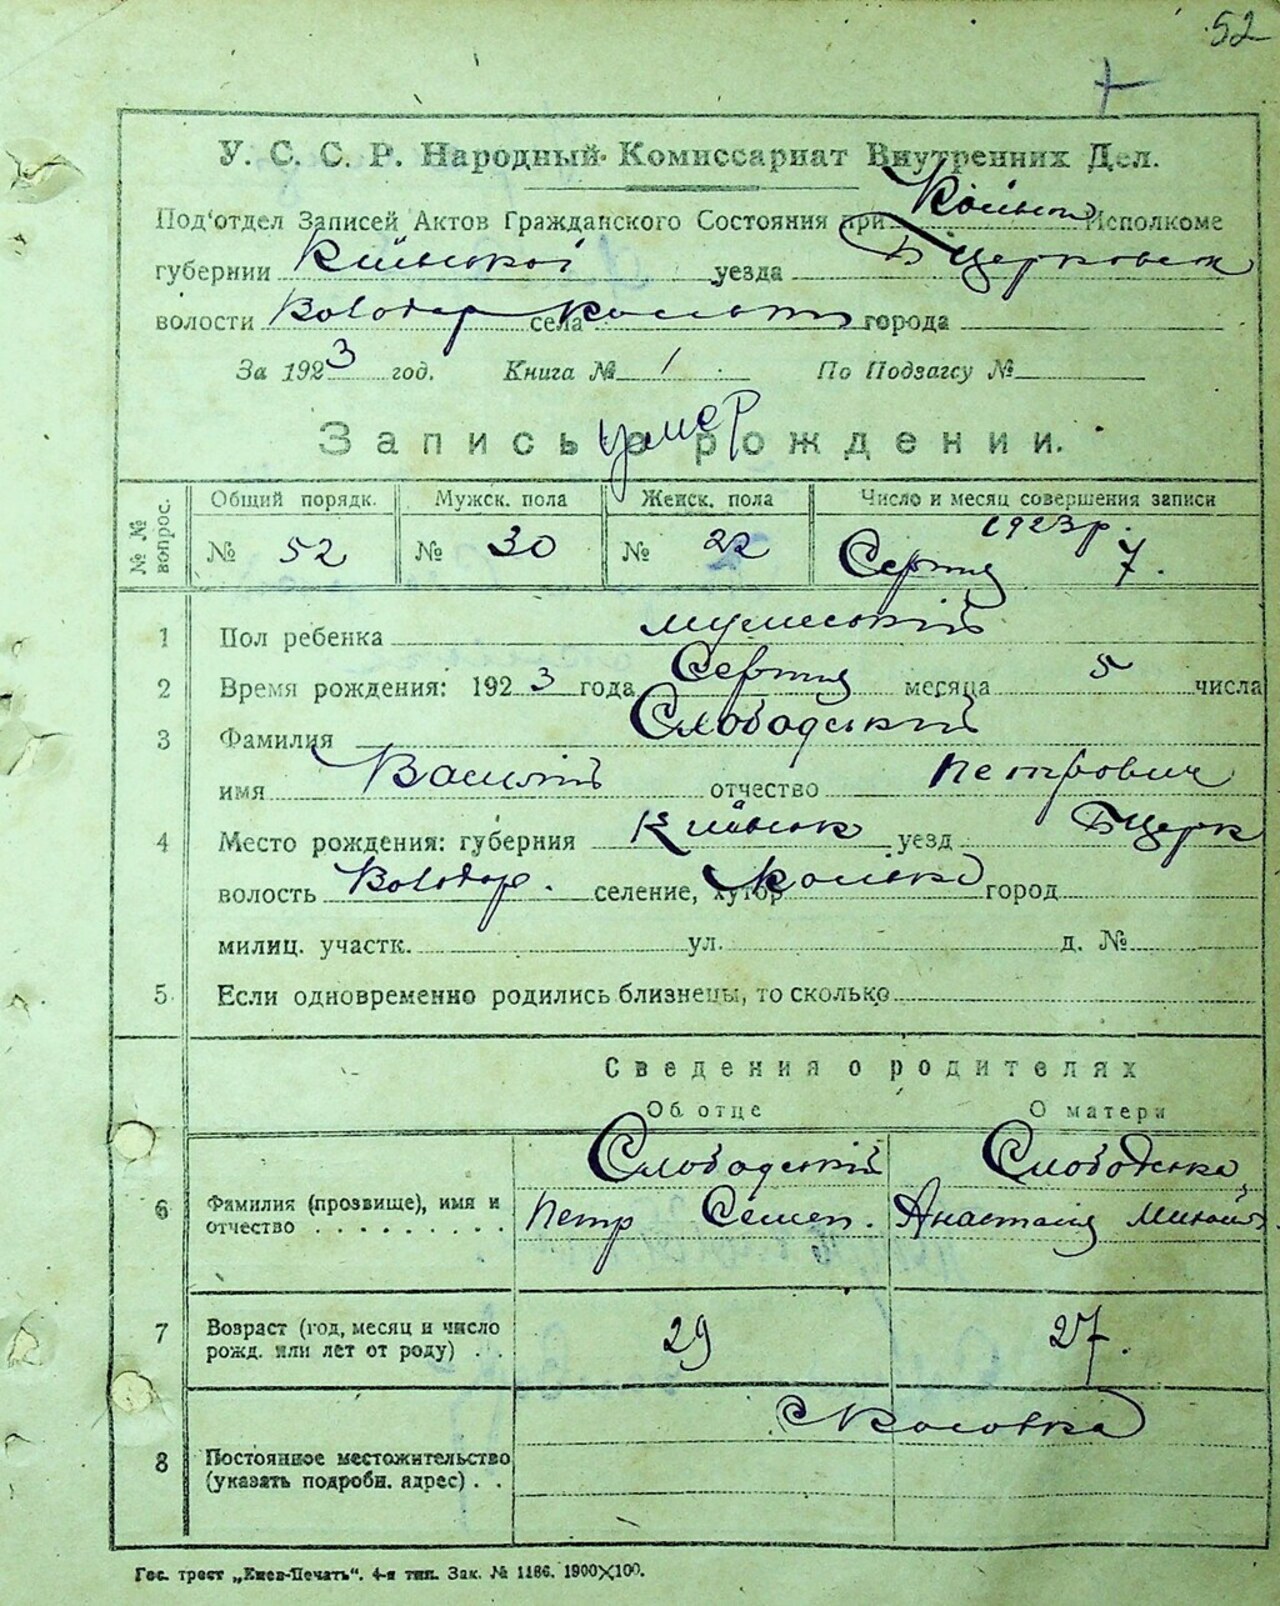 52
У. С. С. Р. Народный Комиссариат Внутренних Дел.
Под'отдел Записей Актов Гражданского Состояния при Исполкоме
губернии Київської уезда Б Церковськ
волости Володар села города
За 1923 год. Книга № 1 По Подзагсу №
умер
Запись о рождении.
№ № вопрос. Общий порядк. Мужск. пола Женск. пола Число и месяц совершения записи
№ 52 № 30 № 22 1923 р. Серпня 7.
1 Пол ребенка мужеський
2 Время рождения: 1923 года Серпня месяца 5 числа
3 Фамилия Слободський
имя Василій отчество Петрович
4 Место рождения: губерния Київськ уезд Б Церк
волость Володар. селение, хутор город
милиц. участк. ул. д. №
5 Если одновременно родились близнецы, то сколько
Сведения о родителях
Об отце О матери
Слободський Слободська
6 Фамилия (прозвище), имя и отчество Петр Семен. Анастасия Михайл
7 Возраст (год, месяц и число рожд. или лет от роду) 29 27.
8 Постоянное местожительство (указать подробн. адрес)
Гос. трест „Киев-Печать". 4-я тип. Зак. № 1186. 1900×100.